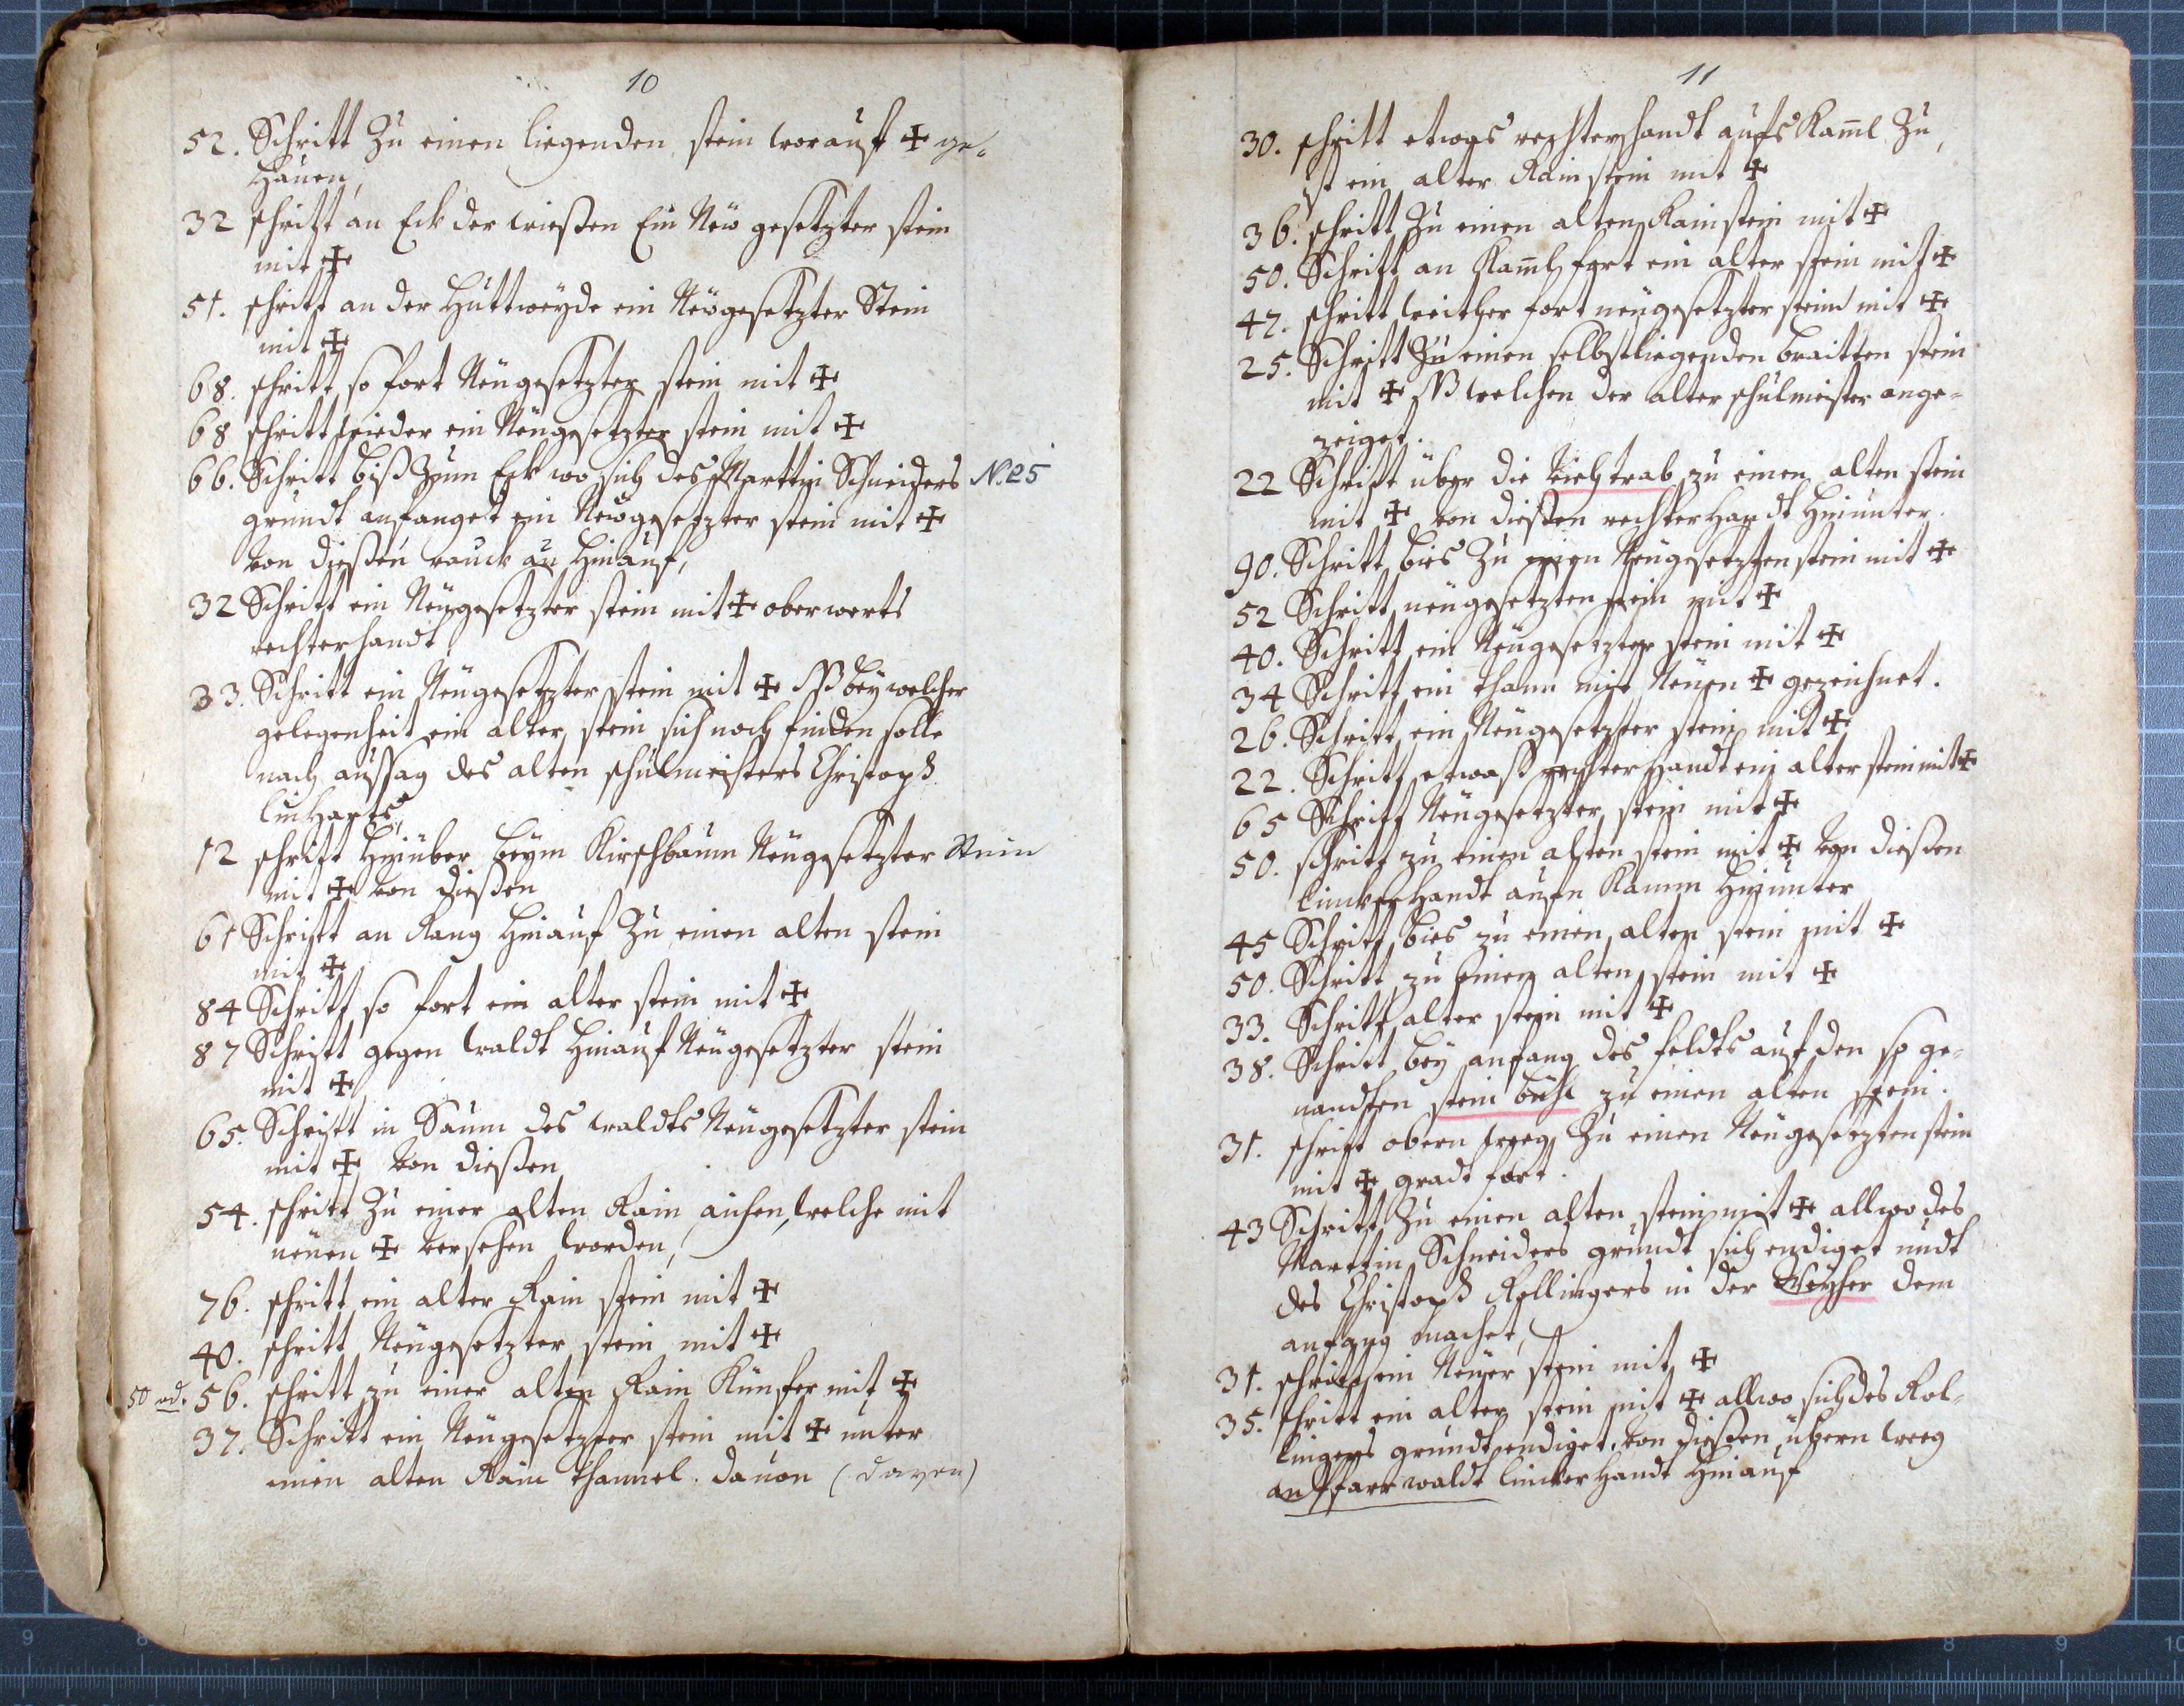 10
52. Schritt Zu einen liegenden stein worauf ✠ ge-
hauen,
32 schritt an Eck der wießen Ein New gesetzter stein
mit ✠
51. schritt an der Huttweyde ein Newgesetzter Stein
mit ✠
68. schritt so fort Neugesetzter stein mit ✠
68 schritt wieder ein Neugesetzter stein mit ✠
66. Schritt biß zum Eck wo sich des Marttin Schneiders N. 25
grundt anfanget ein Newgesetzter stein mit ✠
von dießen rauck an hinauf,
32 Schritt ein Neugesetzter stein mit ✠ oberwerts
rechterhandt
33. Schritt ein Neugesetzter stein mit ✠ NB bey welcher
gelegenheit ein alter stein sich noch finden solle
nach aussag des alten schulmeisters Christoph
linharts,
12 schritt hinüber beym Kirschbaum Neugesetzter Stein
mit ✠ von dießen
61 Schritt an Rang hinauf Zu einen alten stein
mit ✠
84 Schritt so fort ein alter stein mit ✠
87 Schritt gegen waldt hinauf Neugesetzter stein
mit ✠
65. Schritt in Saum des waldts Neugesetzter stein
mit ✠ von dießen
54. schritt Zu einer alten Rain aichen, welche mit
neuen ✠ versehen worden,
76. schritt ein alter Rain stein mit ✠
40. schritt Neugesetzter stein mit ✠
50 od. 56. schritt zu einer alten Rain Künfer mit ✠
37. Schritt ein Neugesetzter stein mit ✠ unter
einen alten Rain thannel. dauon (davon)
11
30. schritt etwas rechterhandt aufs Kam̄l Zu,
ist ein alter Rainstein mit ✠
36. schritt Zu einen alten Rainstein mit ✠
50. Schritt an Kam̄l fort ein alter stein mit ✠
47. schritt weither fort neugesetzter stein mit ✠
25. Schritt Zu einen selbstliegenden braitten stein
mit ✠ NB welchen der alter schulmeister ange-
zeiget.
22 Schritt über die viehtrab zu einen alten stein
mit ✠ von dießen rechterhandt hinunter.
90. Schritt bies Zu einen Neugesetzten stein mit ✠
52 Schritt neugesetzten stein mit ✠
40. Schritt ein Neugesetzter stein mit ✠
34 Schritt ein thann mit Neuen ✠ gezeichnet.
26. Schritt ein Neugesetzter stein mit ✠
22. Schritt etwaß rechterhandt ein alter stein mit ✠
65 Schritt Neugesetzter stein mit ✠
50. schritt zu einen alten stein mit ✠ von dießen
linckerhandt aufn Kamm hinunter
45 Schritt bies zu einen alten stein mit ✠
50. Schritt zu einen alten stein mit ✠
33. Schritt alter stein mit ✠
38. Schritt bey anfang des feldts auf den so ge-
nandten stein bühl zu einen alten stein.
31. schritt obern weeg Zu einen Neugesetzten stein
mit ✠ gradt fort.
43 Schritt Zu einen alten stein mit ✠ allwo des
Marttin Schneiders grundt sich endiget undt
des Christoph Rollingers in der Weyher dem
anfang machet,
31. schritt ein Neuer stein mit ✠
35. schritt ein alter stein mit ✠ allwo sich des Rol-
lingers grundt endiget, von dießen übern weeg
an Pfarrwaldt linckerhandt hinauf